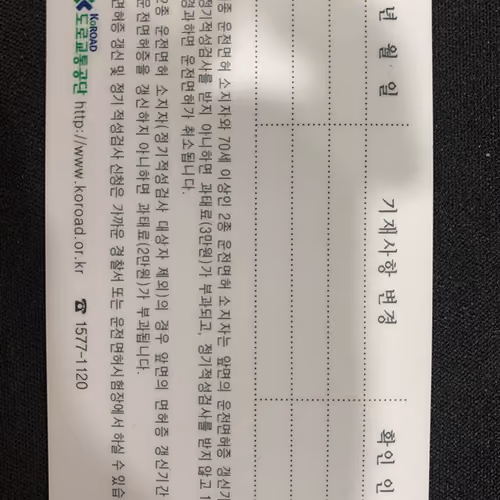 년 월 일 기재사항 변경 확인 인
종 운전면허 소지자와 70세 이상인 2종 운전면허 소지자는 앞면의 운전면허증 갱신기
정기적성검사를 받지 아니하면 과태료(3만원)가 부과되고, 정기적성검사를 받지 않고 1
경과하면 운전면허가 취소됩니다.
종 운전면허 소지자(정기적성검사 대상자 제외)의 경우 앞면의 면허증 갱신기간
운전면허증을 갱신하지 아니하면 과태료(2만원)가 부과됩니다.
면허증 갱신 및 정기 적성검사 신청은 가까운 경찰서 또는 운전면허시험장에서 하실 수 있습
KOROAD
도로교통공단 http://www.koroad.or.kr ☎ 1577-1120